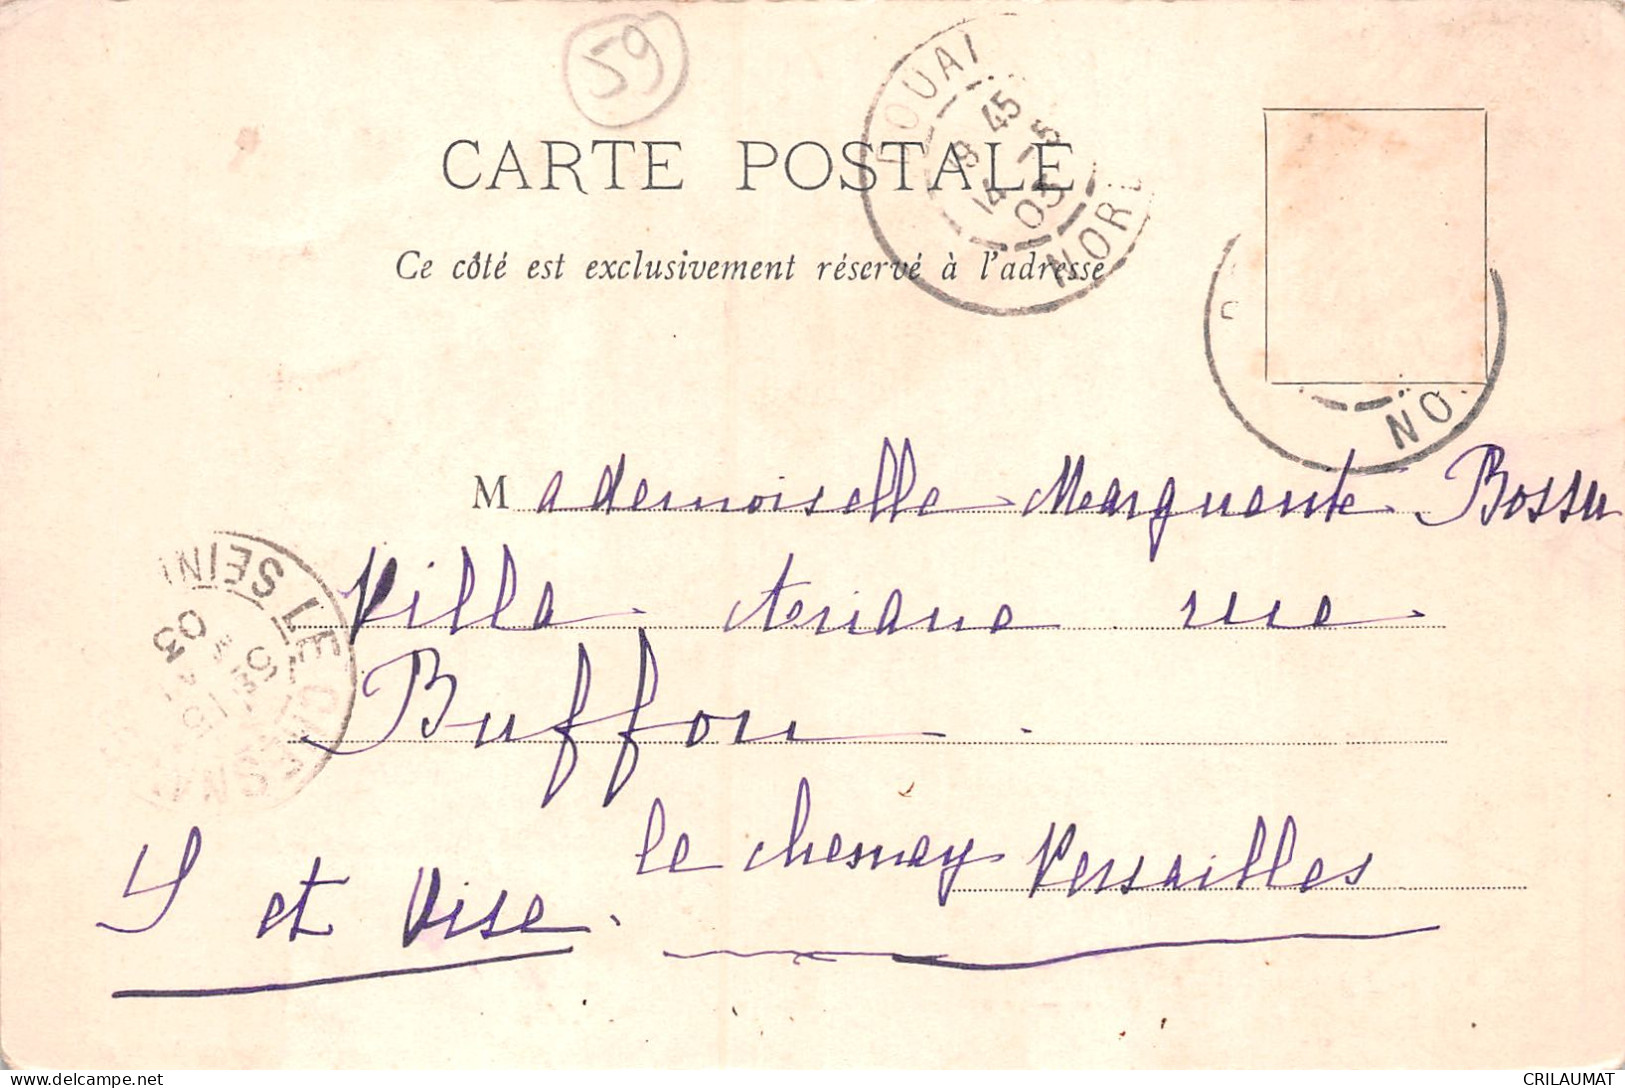 59
DOUAI
18 45
14 -5
03
NOR
CARTE POSTALE
Ce côté est exclusivement réservé à l'adresse
NO
Mademoiselle Marguerite Bossu
Villa Ariane rue
Buffon
le Chesnay Versailles
S et Oise.
LE CHESNAY
SEIN
03
CRILAUMAT